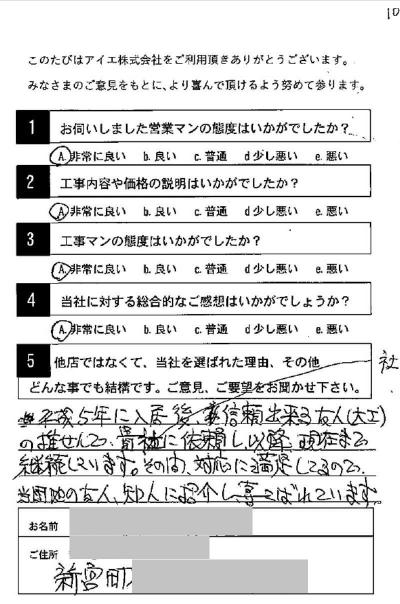 10
このたびはアイエ株式会社をご利用頂きありがとうございます。
みなさまのご意見をもとに、より喜んで頂けるよう努めて参ります。
1 お伺いしました営業マンの態度はいかがでしたか?
A.非常に良い b.良い c.普通 d少し悪い e.悪い
2 工事内容や価格の説明はいかがでしたか?
A.非常に良い b.良い c.普通 d少し悪い e.悪い
3 工事マンの態度はいかがでしたか?
A.非常に良い b.良い c.普通 d少し悪い e.悪い
4 当社に対する総合的なご感想はいかがでしょうか?
A.非常に良い b.良い c.普通 d少し悪い e.悪い
5 他店ではなくて、当社を選ばれた理由、その他
社
どんな事でも結構です。ご意見、ご要望をお聞かせ下さい。
平成5年に入居後、信頼出来る友人(大工)
の推せんで、貴社に依頼し、以降、現在まで
継続しています。その、対応に満足してるので、
当団地の友人、知人に紹介し、喜こばれています。
お名前
ご住所
新宮町